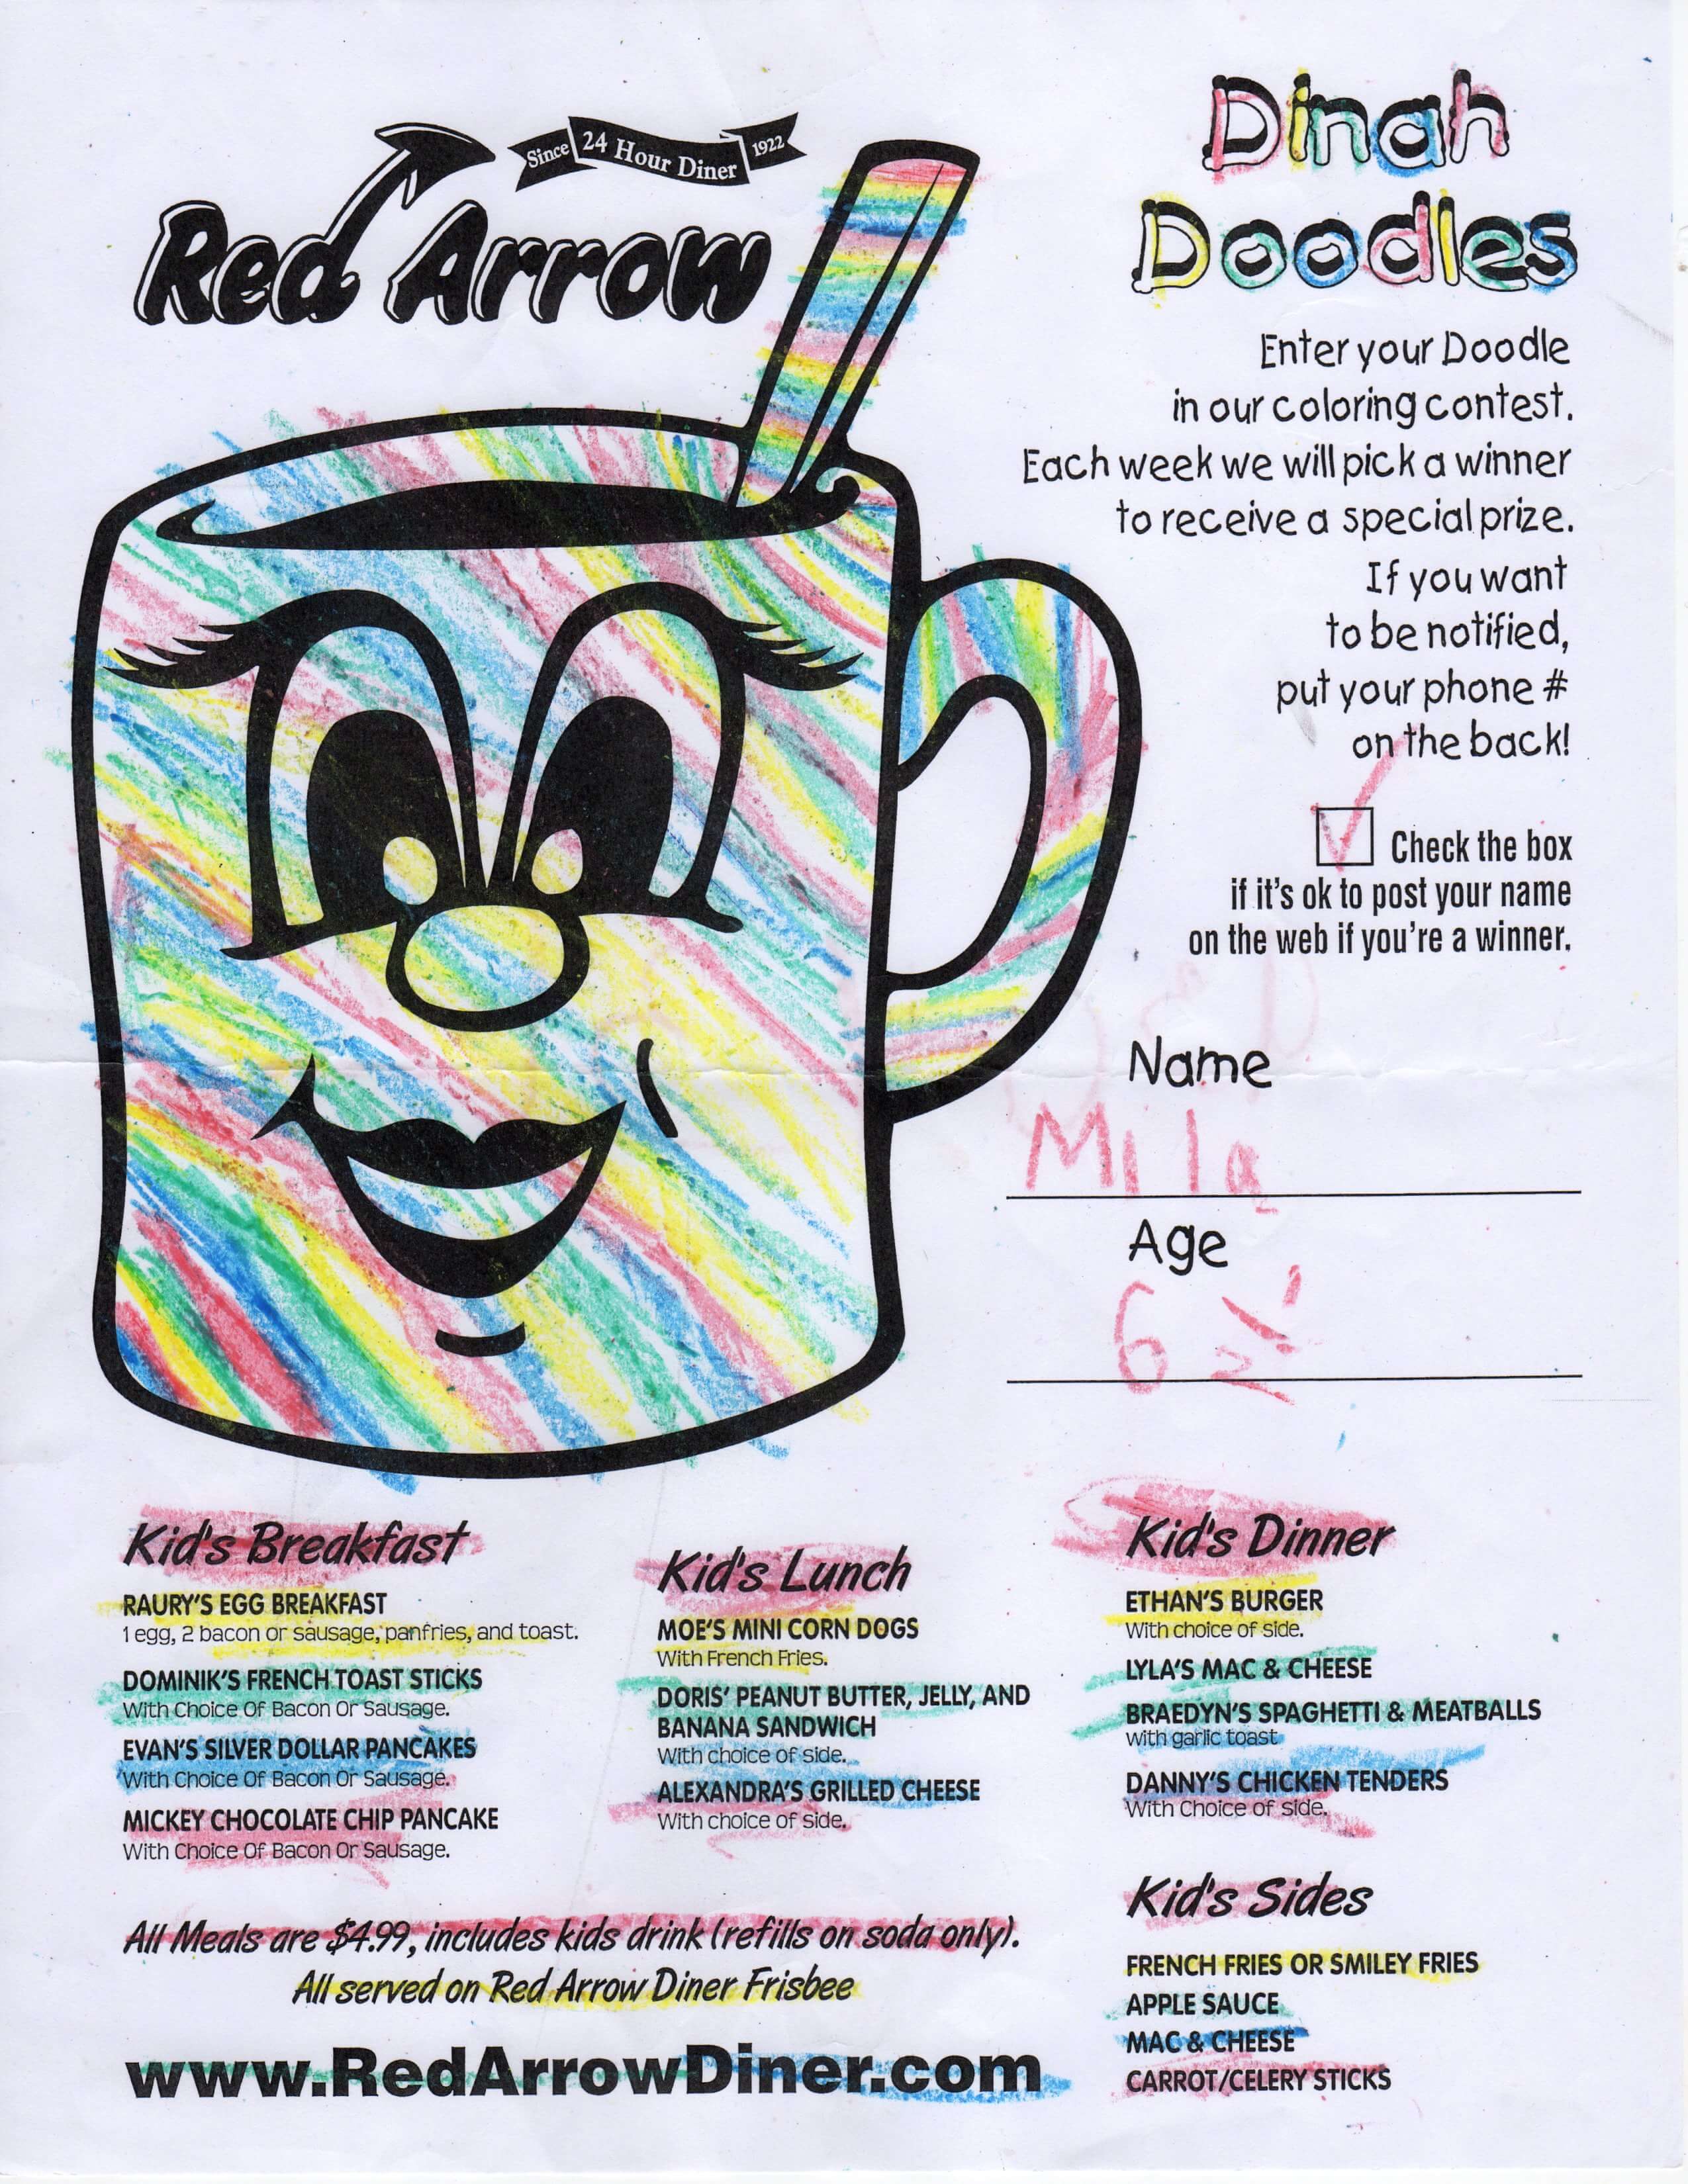 Since 24 Hour Diner 1922
Red Arrow
Dinah
Doodles
Enter your Doodle
in our coloring contest.
Each week we will pick a winner
to receive a special prize.
If you want
to be notified,
put your phone #
on the back!
Check the box
if it's ok to post your name
on the web if you're a winner.
Name
Mila
Age
6
Kid's Breakfast
RAURY'S EGG BREAKFAST
1 egg, 2 bacon or sausage, panfries, and toast.
DOMINIK'S FRENCH TOAST STICKS
With Choice Of Bacon Or Sausage.
EVAN'S SILVER DOLLAR PANCAKES
With Choice Of Bacon Or Sausage.
MICKEY CHOCOLATE CHIP PANCAKE
With Choice Of Bacon Or Sausage.
Kid's Lunch
MOE'S MINI CORN DOGS
With French Fries.
DORIS' PEANUT BUTTER, JELLY, AND
BANANA SANDWICH
With choice of side.
ALEXANDRA'S GRILLED CHEESE
With choice of side.
Kid's Dinner
ETHAN'S BURGER
With choice of side.
LYLA'S MAC & CHEESE
BRAEDYN'S SPAGHETTI & MEATBALLS
with garlic toast
DANNY'S CHICKEN TENDERS
With Choice of side.
Kid's Sides
FRENCH FRIES OR SMILEY FRIES
APPLE SAUCE
MAC & CHEESE
CARROT/CELERY STICKS
All Meals are $4.99, includes kids drink (refills on soda only).
All served on Red Arrow Diner Frisbee
www.RedArrowDiner.com